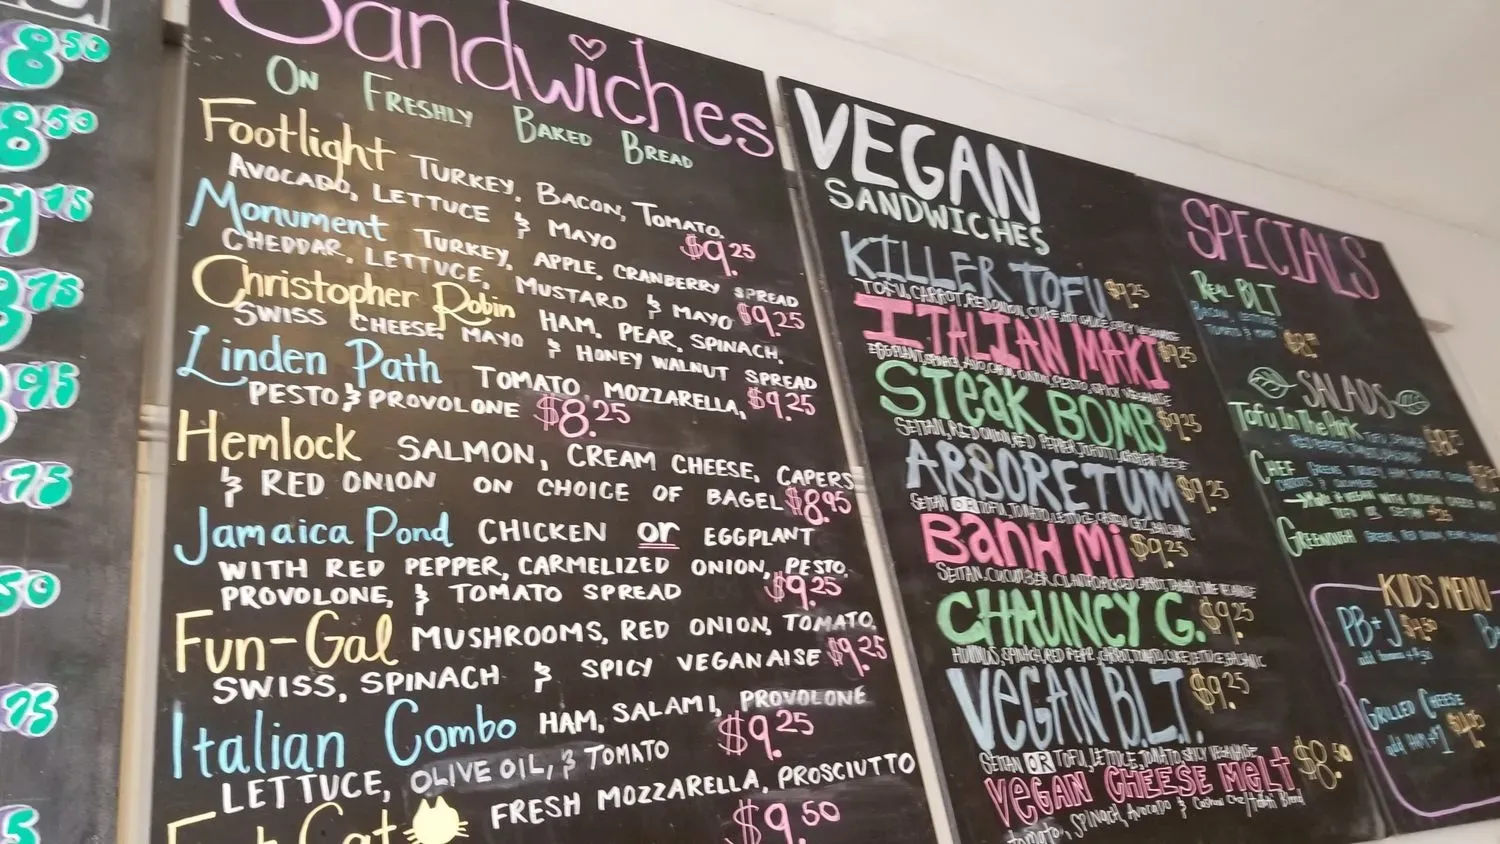 8.50
8.50
9.75
8.75
.95
.75
.50
.75
5
Sandwiches
On Freshly Baked Bread
Footlight Turkey, Bacon, Tomato,
Avocado, Lettuce & Mayo $9.25
Monument Turkey, Apple, Cranberry Spread
Cheddar, Lettuce, Mustard & Mayo $9.25
Christopher Robin Ham, Pear, Spinach,
Swiss Cheese, Mayo & Honey Walnut Spread
$9.25
Linden Path Tomato, Mozzarella,
Pesto & Provolone $8.25
Hemlock Salmon, Cream Cheese, Capers
& Red Onion on Choice of Bagel $8.95
Jamaica Pond Chicken or Eggplant
with Red Pepper, Carmelized Onion, Pesto,
Provolone, & Tomato Spread $9.25
Fun-Gal Mushrooms, Red Onion, Tomato,
Swiss, Spinach & Spicy Veganaise $9.25
Italian Combo Ham, Salami, Provolone
Lettuce, Olive Oil, & Tomato $9.25
Cat Fresh Mozzarella, Prosciutto
$9.50
VEGAN
SANDWICHES
KILLER TOFU $9.25
Tofu, Carrot, Red Onion, Cuke, Hot Sauce, Spicy Veganaise
ITALIAN MAKI $9.25
Onion, Pesto, Spicy Veganaise
STEAK BOMB $9.25
Seitan, Red Onion, Red Pepper,
ARBORETUM $9.25
Seitan OR Tofu, Tomato, Lettuce,
BANH MI $9.25
Seitan, Cucumber, Cilantro, Pickled Carrot,
CHAUNCY G. $9.25
Hummus, Spinach, Red Pepper, Carrot, Tomato, Cuke, Lettuce, Balsamic
VEGAN B.L.T. $9.25
Seitan OR Tofu, Lettuce, Tomato, Spicy Veganaise
VEGAN CHEESE MELT $8.50
Tomato, Spinach, Avocado & Cashew
SPECIALS
Real BLT
Bacon, Lettuce
Tomato & Mayo
SALADS
Tofu In The Park Tofu,
Chef Greens, Turkey, Ham, Tomato,
Carrots & Cucumbers
Make it Vegan with
Tofu or Seitan
Greenough Greens, Red Onion,
KIDS MENU
PB+J
Grilled Cheese
add Ham +